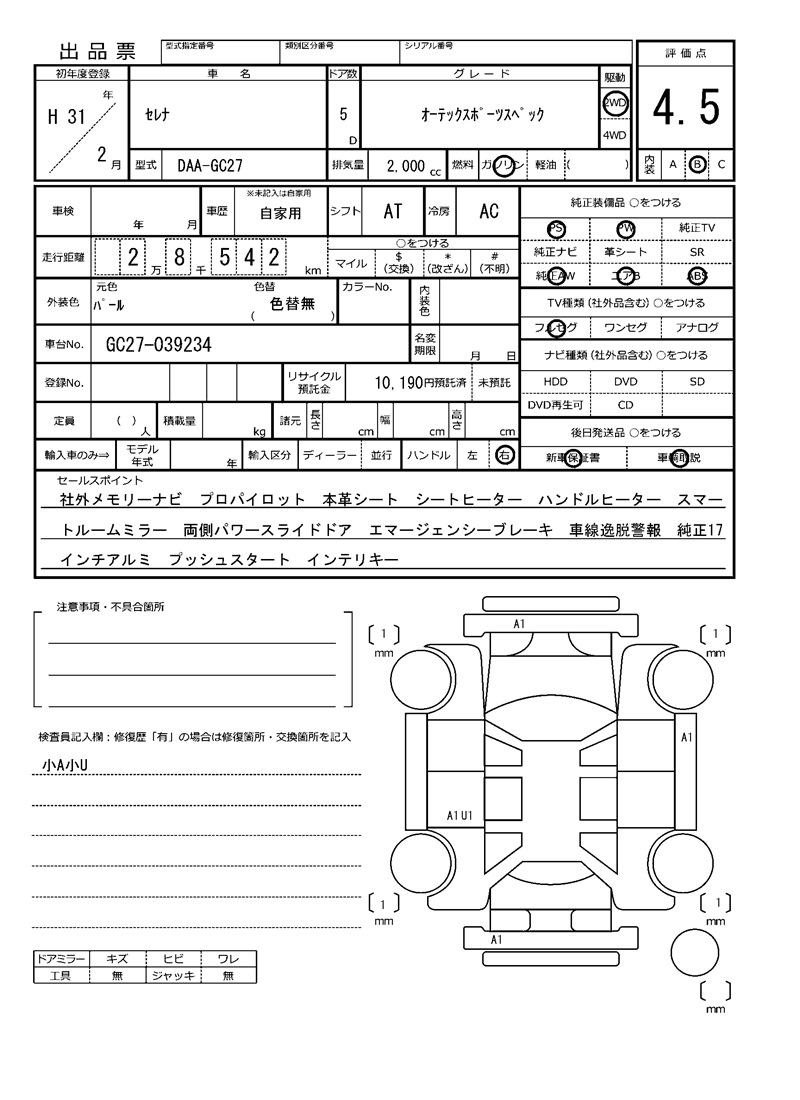 出品票
型式指定番号
類別区分番号
シリアル番号
評価点
4.5
内装 A B C
初年度登録
車 名
ドア数
グレード
駆動
H 31 年
2 月
セレナ
5 D
オーテックスポーツスペック
2WD
4WD
型式
DAA-GC27
排気量
2,000 cc
燃料
ガソリン
軽油
( )
車検
年 月
車歴
※未記入は自家用
自家用
シフト
AT
冷房
AC
走行距離
2 万 8 千 5 4 2 km
○をつける
マイル
$ (交換)
* (改ざん)
# (不明)
外装色
元色
パール
色替
色替無
( )
カラーNo.
内装色
車台No.
GC27-039234
名変期限
月 日
登録No.
リサイクル預託金
10,190円預託済
未預託
定員
( ) 人
積載量
kg
諸元
長さ
cm
幅
cm
高さ
cm
輸入車のみ⇒
モデル年式
年
輸入区分
ディーラー
並行
ハンドル
左
右
純正装備品 ○をつける
PS PW 純正TV
純正ナビ 革シート SR
純正AW エアB ABS
TV種類(社外品含む)○をつける
フルセグ ワンセグ アナログ
ナビ種類(社外品含む)○をつける
HDD DVD SD
DVD再生可 CD
後日発送品 ○をつける
新車保証書 車輌取説
セールスポイント
社外メモリーナビ プロパイロット 本革シート シートヒーター ハンドルヒーター スマー
トルームミラー 両側パワースライドドア エマージェンシーブレーキ 車線逸脱警報 純正17
インチアルミ プッシュスタート インテリキー
注意事項・不具合箇所
検査員記入欄：修復歴「有」の場合は修復箇所・交換箇所を記入
小A小U
ドアミラー キズ ヒビ ワレ
工具 無 ジャッキ 無
A1
1
mm
1
mm
A1
A1U1
1
mm
1
mm
A1
mm